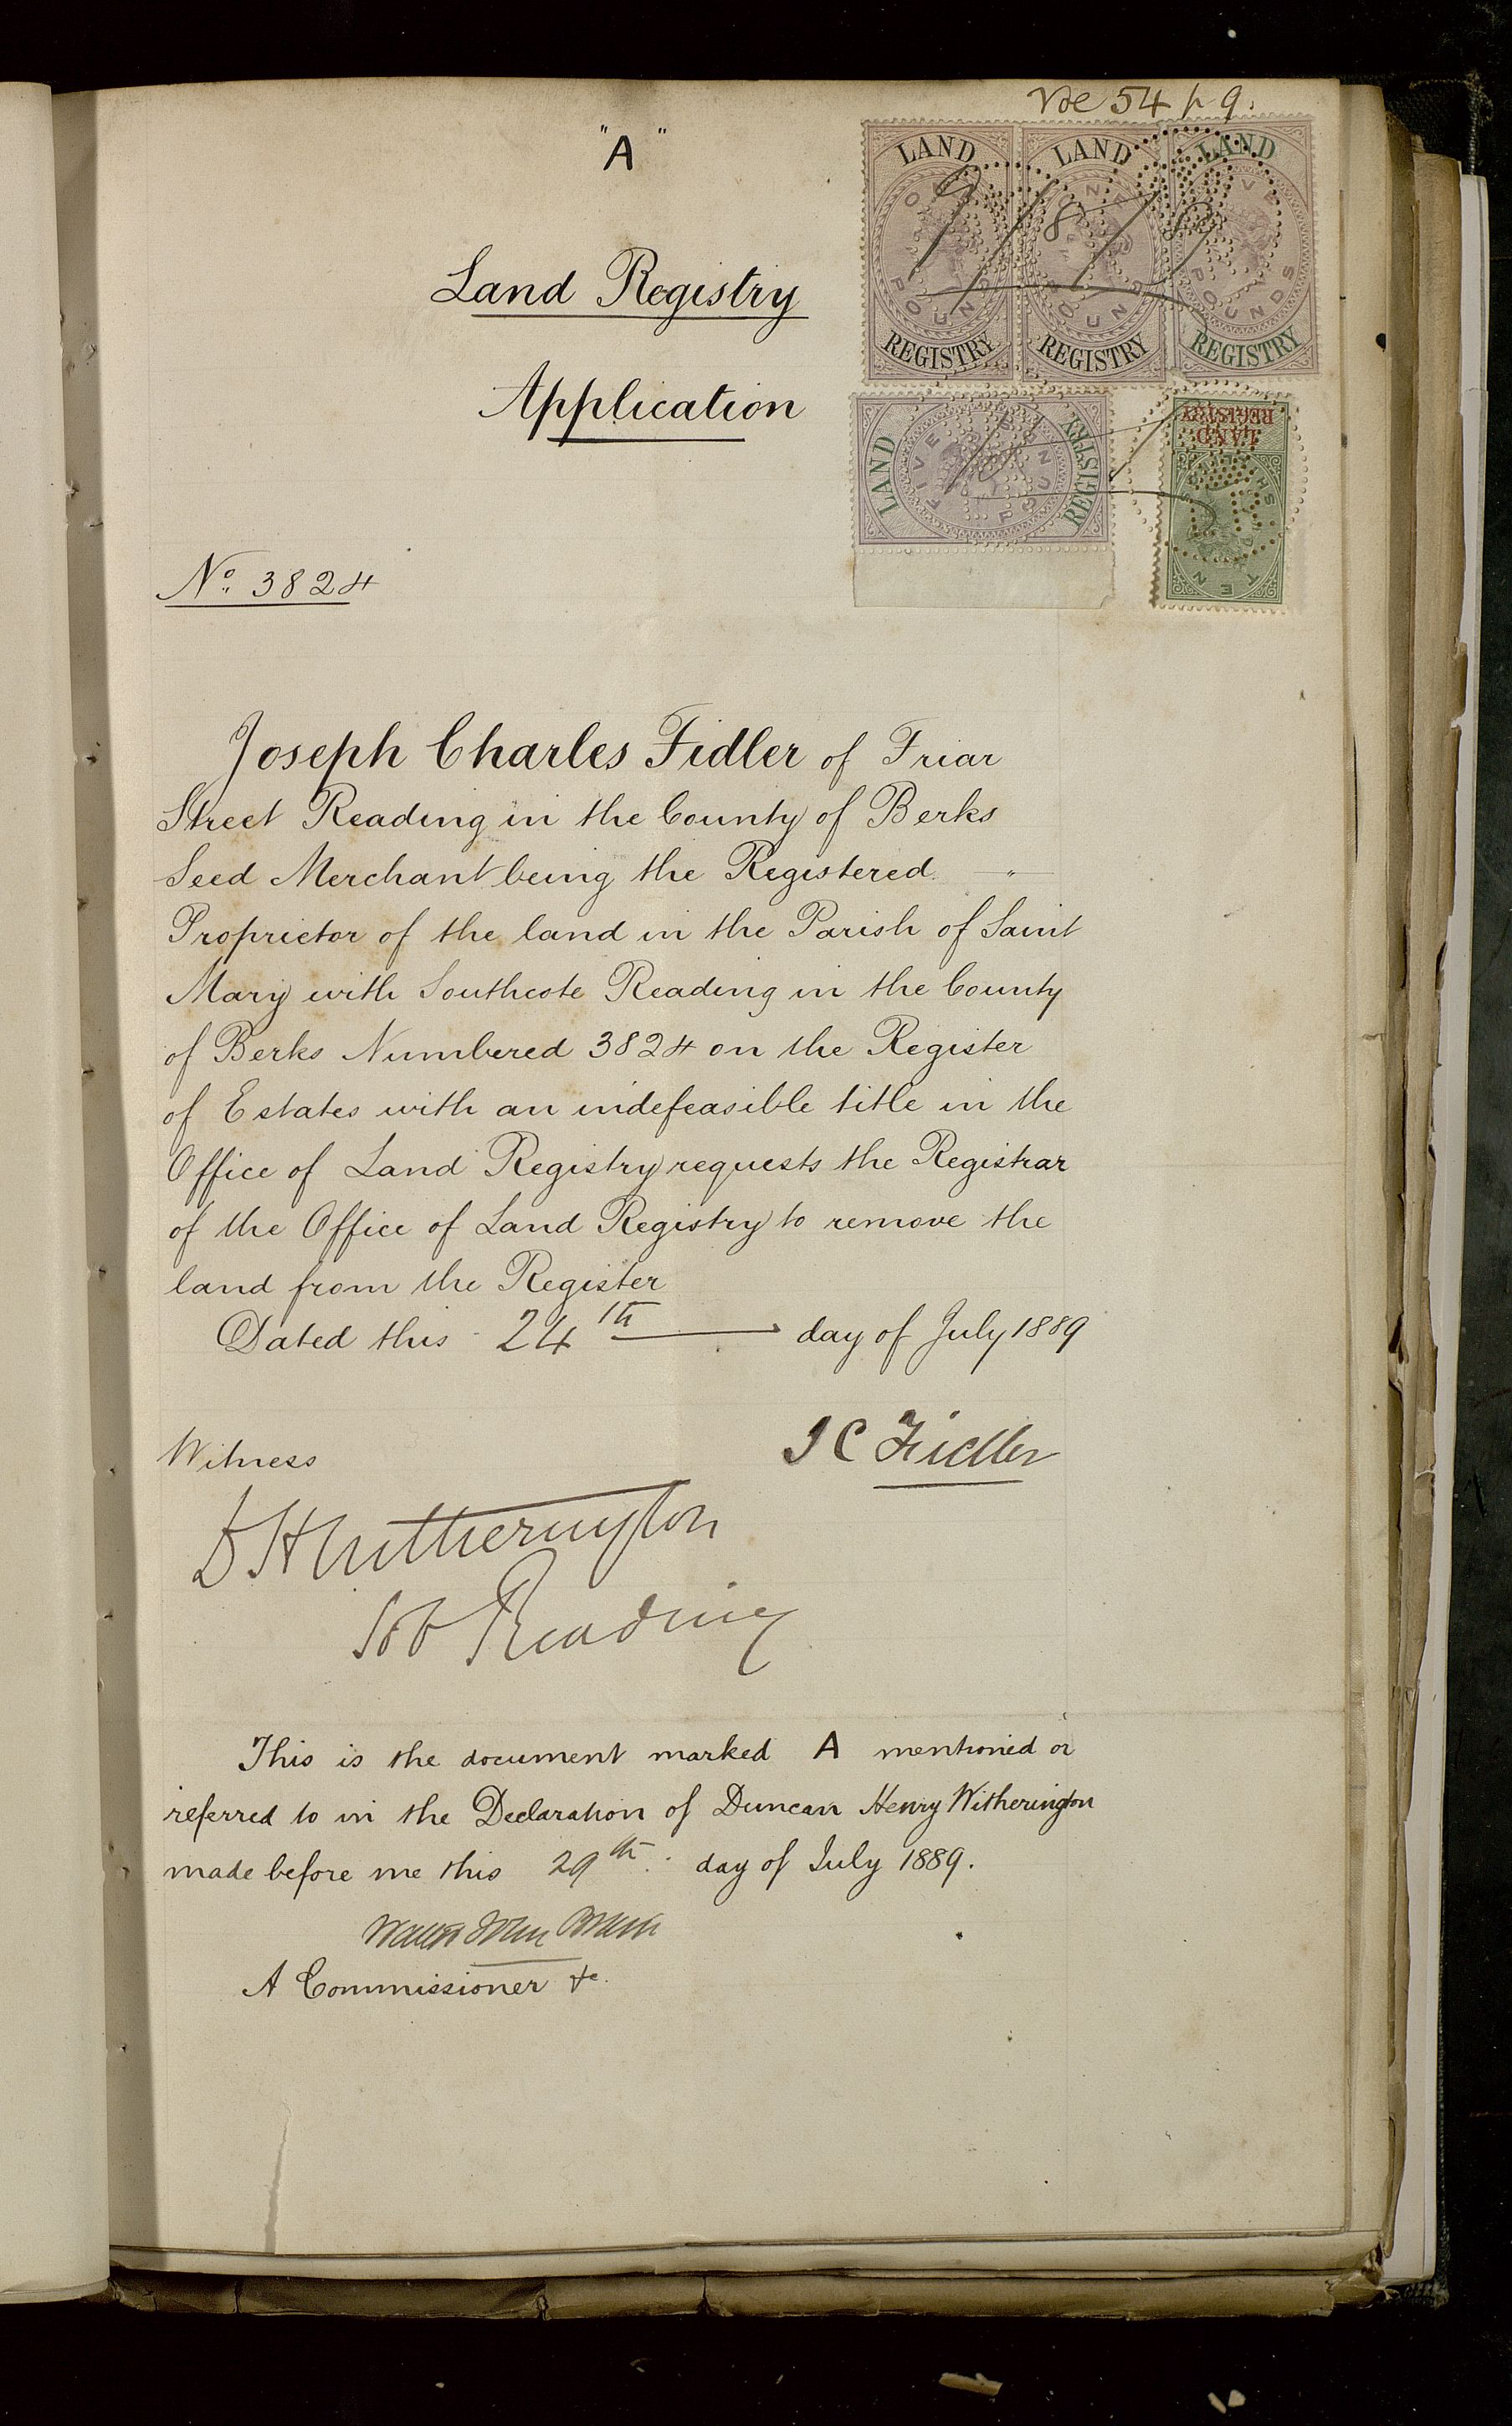 Vol 54 p 9.
"A"
LAND REGISTRY ONE POUND
LAND REGISTRY ONE POUND
LAND REGISTRY FIVE POUNDS
Land Registry
Application
LAND REGISTRY FIVE POUNDS
LAND REGISTRY TEN SHILLINGS
No. 3824
Joseph Charles Fidler of Friar
Street Reading in the County of Berks
Seed Merchant being the Registered
Proprietor of the land in the Parish of Saint
Mary with Southcote Reading in the County
of Berks Numbered 3824 on the Register
of Estates with an indefeasible title in the
Office of Land Registry requests the Registrar
of the Office of Land Registry to remove the
land from the Register
Dated this 24th day of July 1889
J C Fidler
Witness
D H Witherington
Solr Reading
This is the document marked A mentioned or
referred to in the Declaration of Duncan Henry Witherington
made before me this 29th day of July 1889.
John
A Commissioner &c.